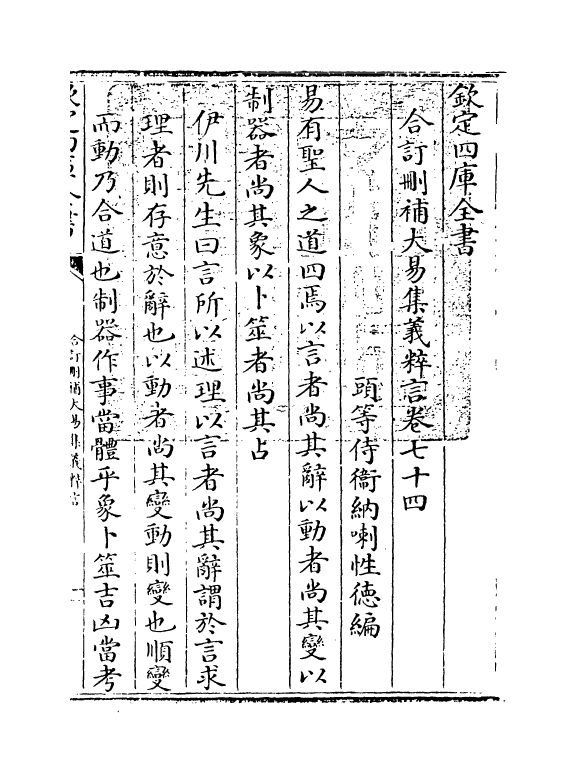 欽定四庫全書
合訂刪補大易集義粹言卷七十四
頭等侍衞納喇性徳編
易有聖人之道四焉以言者尚其辭以動者尚其變以
制器者尚其象以卜筮者尚其占
伊川先生曰言所以述理以言者尚其辭謂於言求
理者則存意於辭也以動者尚其變動則變也順變
而動乃合道也制器作事當體乎象卜筮吉凶當考
合訂刪補大易集義粹言